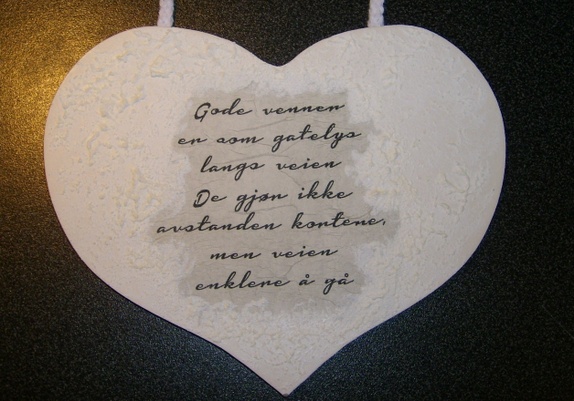 Gode venner
er som gatelys
langs veien
De gjør ikke
avstanden kortere,
men veien
enklere å gå